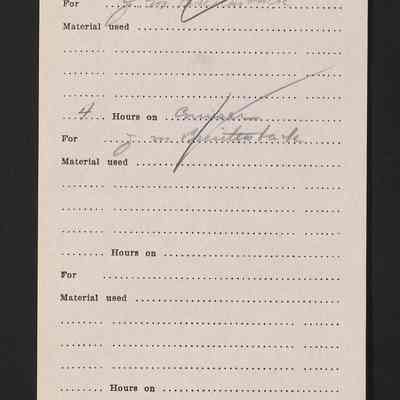 For J. M.
Material used
4 Hours on
For J. M.
Material used
Hours on
For
Material used
Hours on